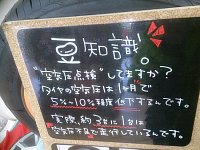 豆知識。
"空気圧点検"してますか?
タイヤの空気圧は1ヶ月で
5%~10%程度低下するんです。
実際、約3台に1台は
空気圧不足で走行しているんです。